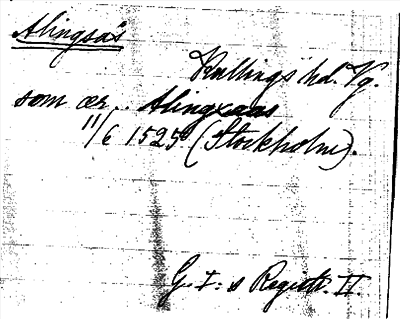 Alingsås
Kullings hd. Vg.
som ær.. Alingxaas
11/6 1525 (Stockholm).
G. I:s Registr. II